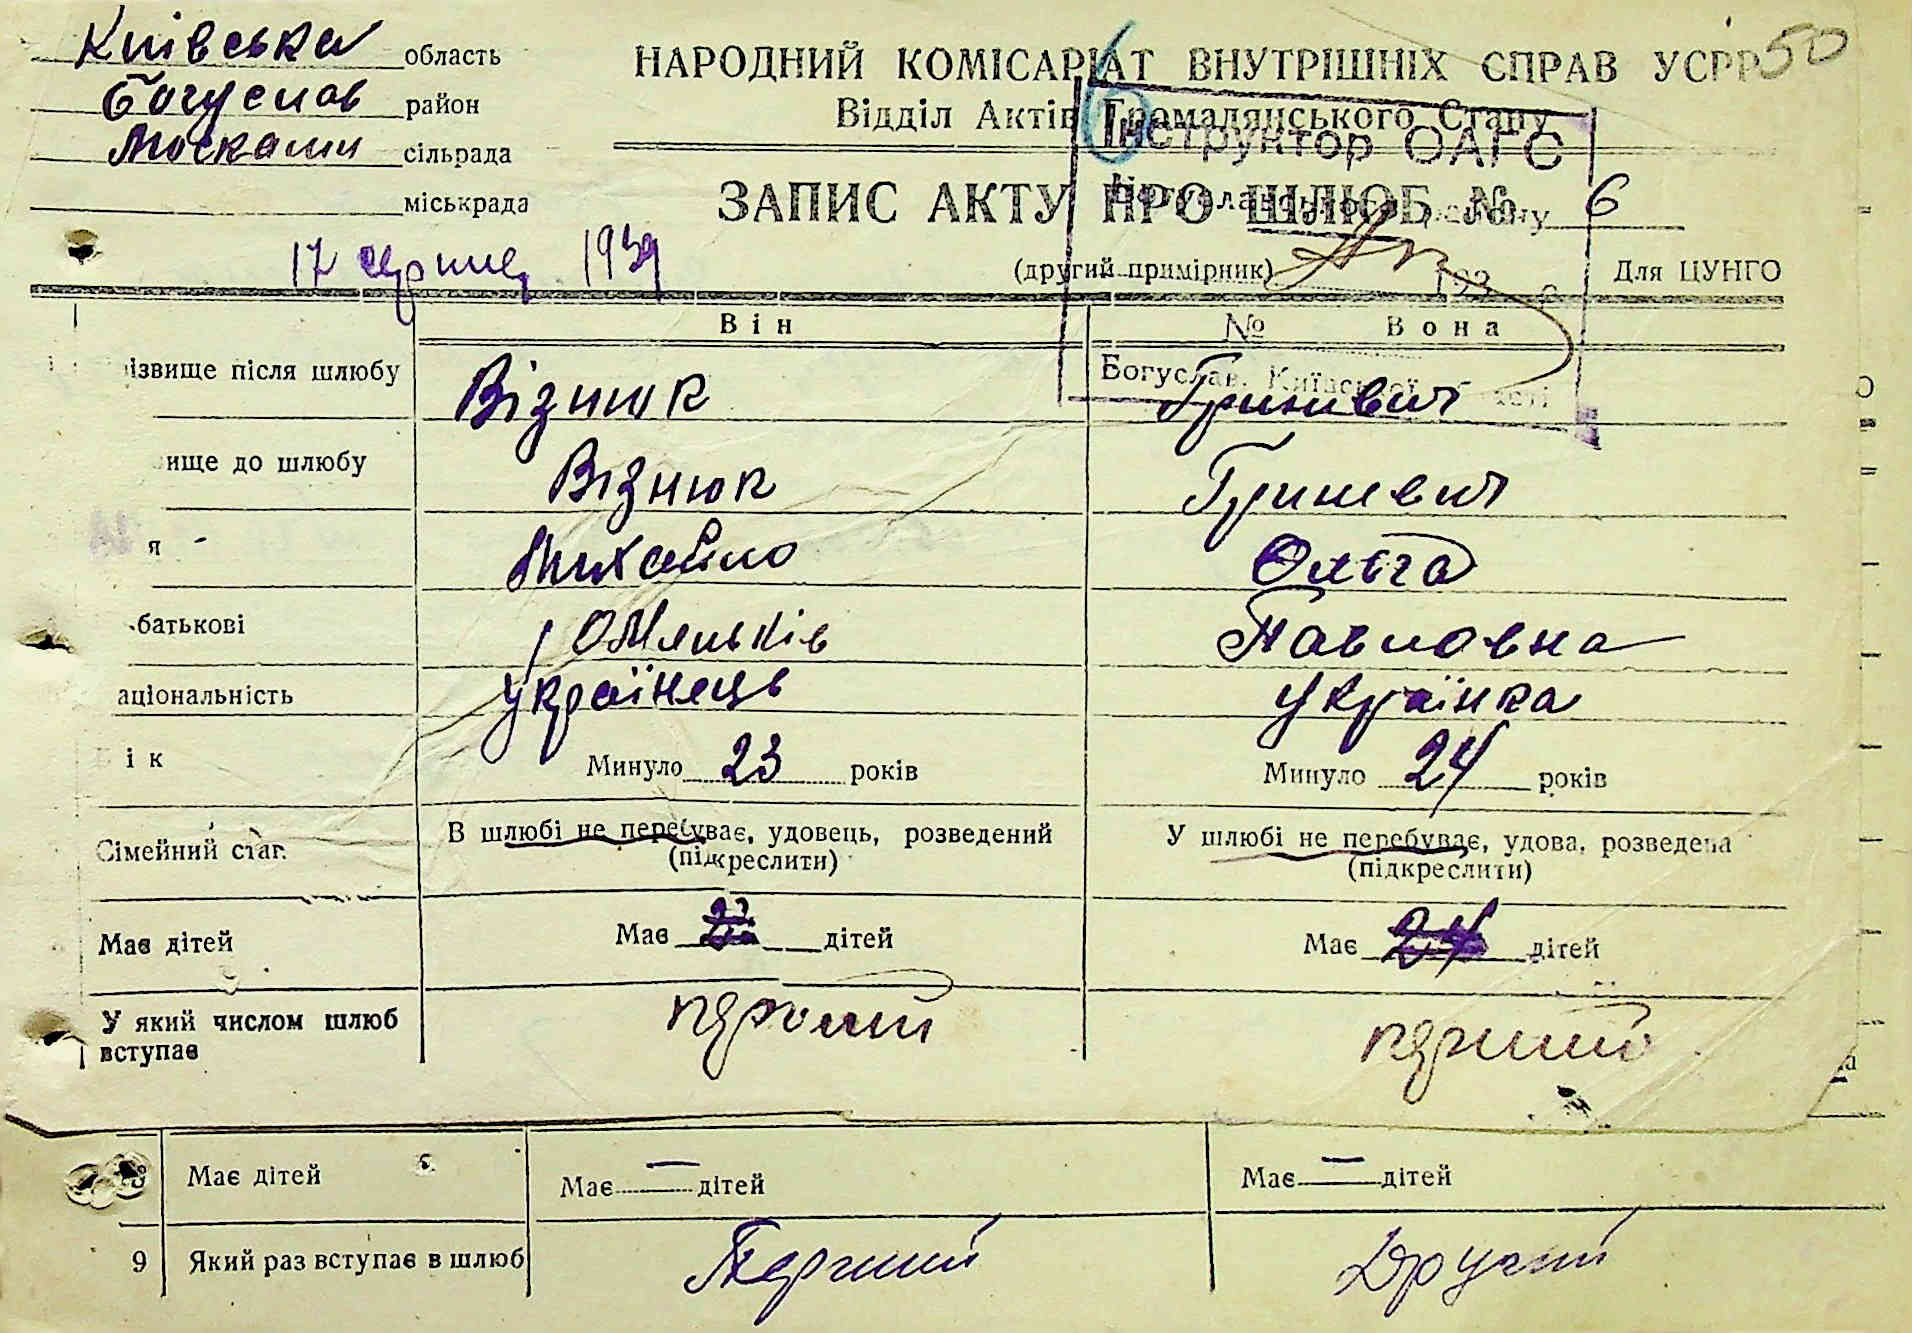 Київська область
НАРОДНИЙ КОМІСАРІАТ ВНУТРІШНІХ СПРАВ УСРР 50
Богуслав район
Відділ Актів Громадянського Стану
Москалі сільрада
Інструктор ОАГС
міськрада
ЗАПИС АКТУ ПРО ШЛЮБ № 6
Богуславського району
17 серпня 1934
(другий примірник)
193
Для ЦУНГО
Він
№
Вона
різвище після шлюбу
Візнюк
Богуслав, Київської області
Гриневич
ище до шлюбу
Візнюк
Гриневич
я
Михайло
Ольга
батькові
Омельків
Павловна
аціональність
українець
українка
Вік
Минуло 23 років
Минуло 24 років
Сімейний стаг.
В шлюбі не перебуває, удовець, розведений
(підкреслити)
У шлюбі не перебуває, удова, розведена
(підкреслити)
Має дітей
Має дітей
Має 24 дітей
У який числом шлюб
вступає
перший
перший
8 Має дітей
Має — дітей
Має — дітей
9 Який раз вступає в шлюб
Перший
Другий